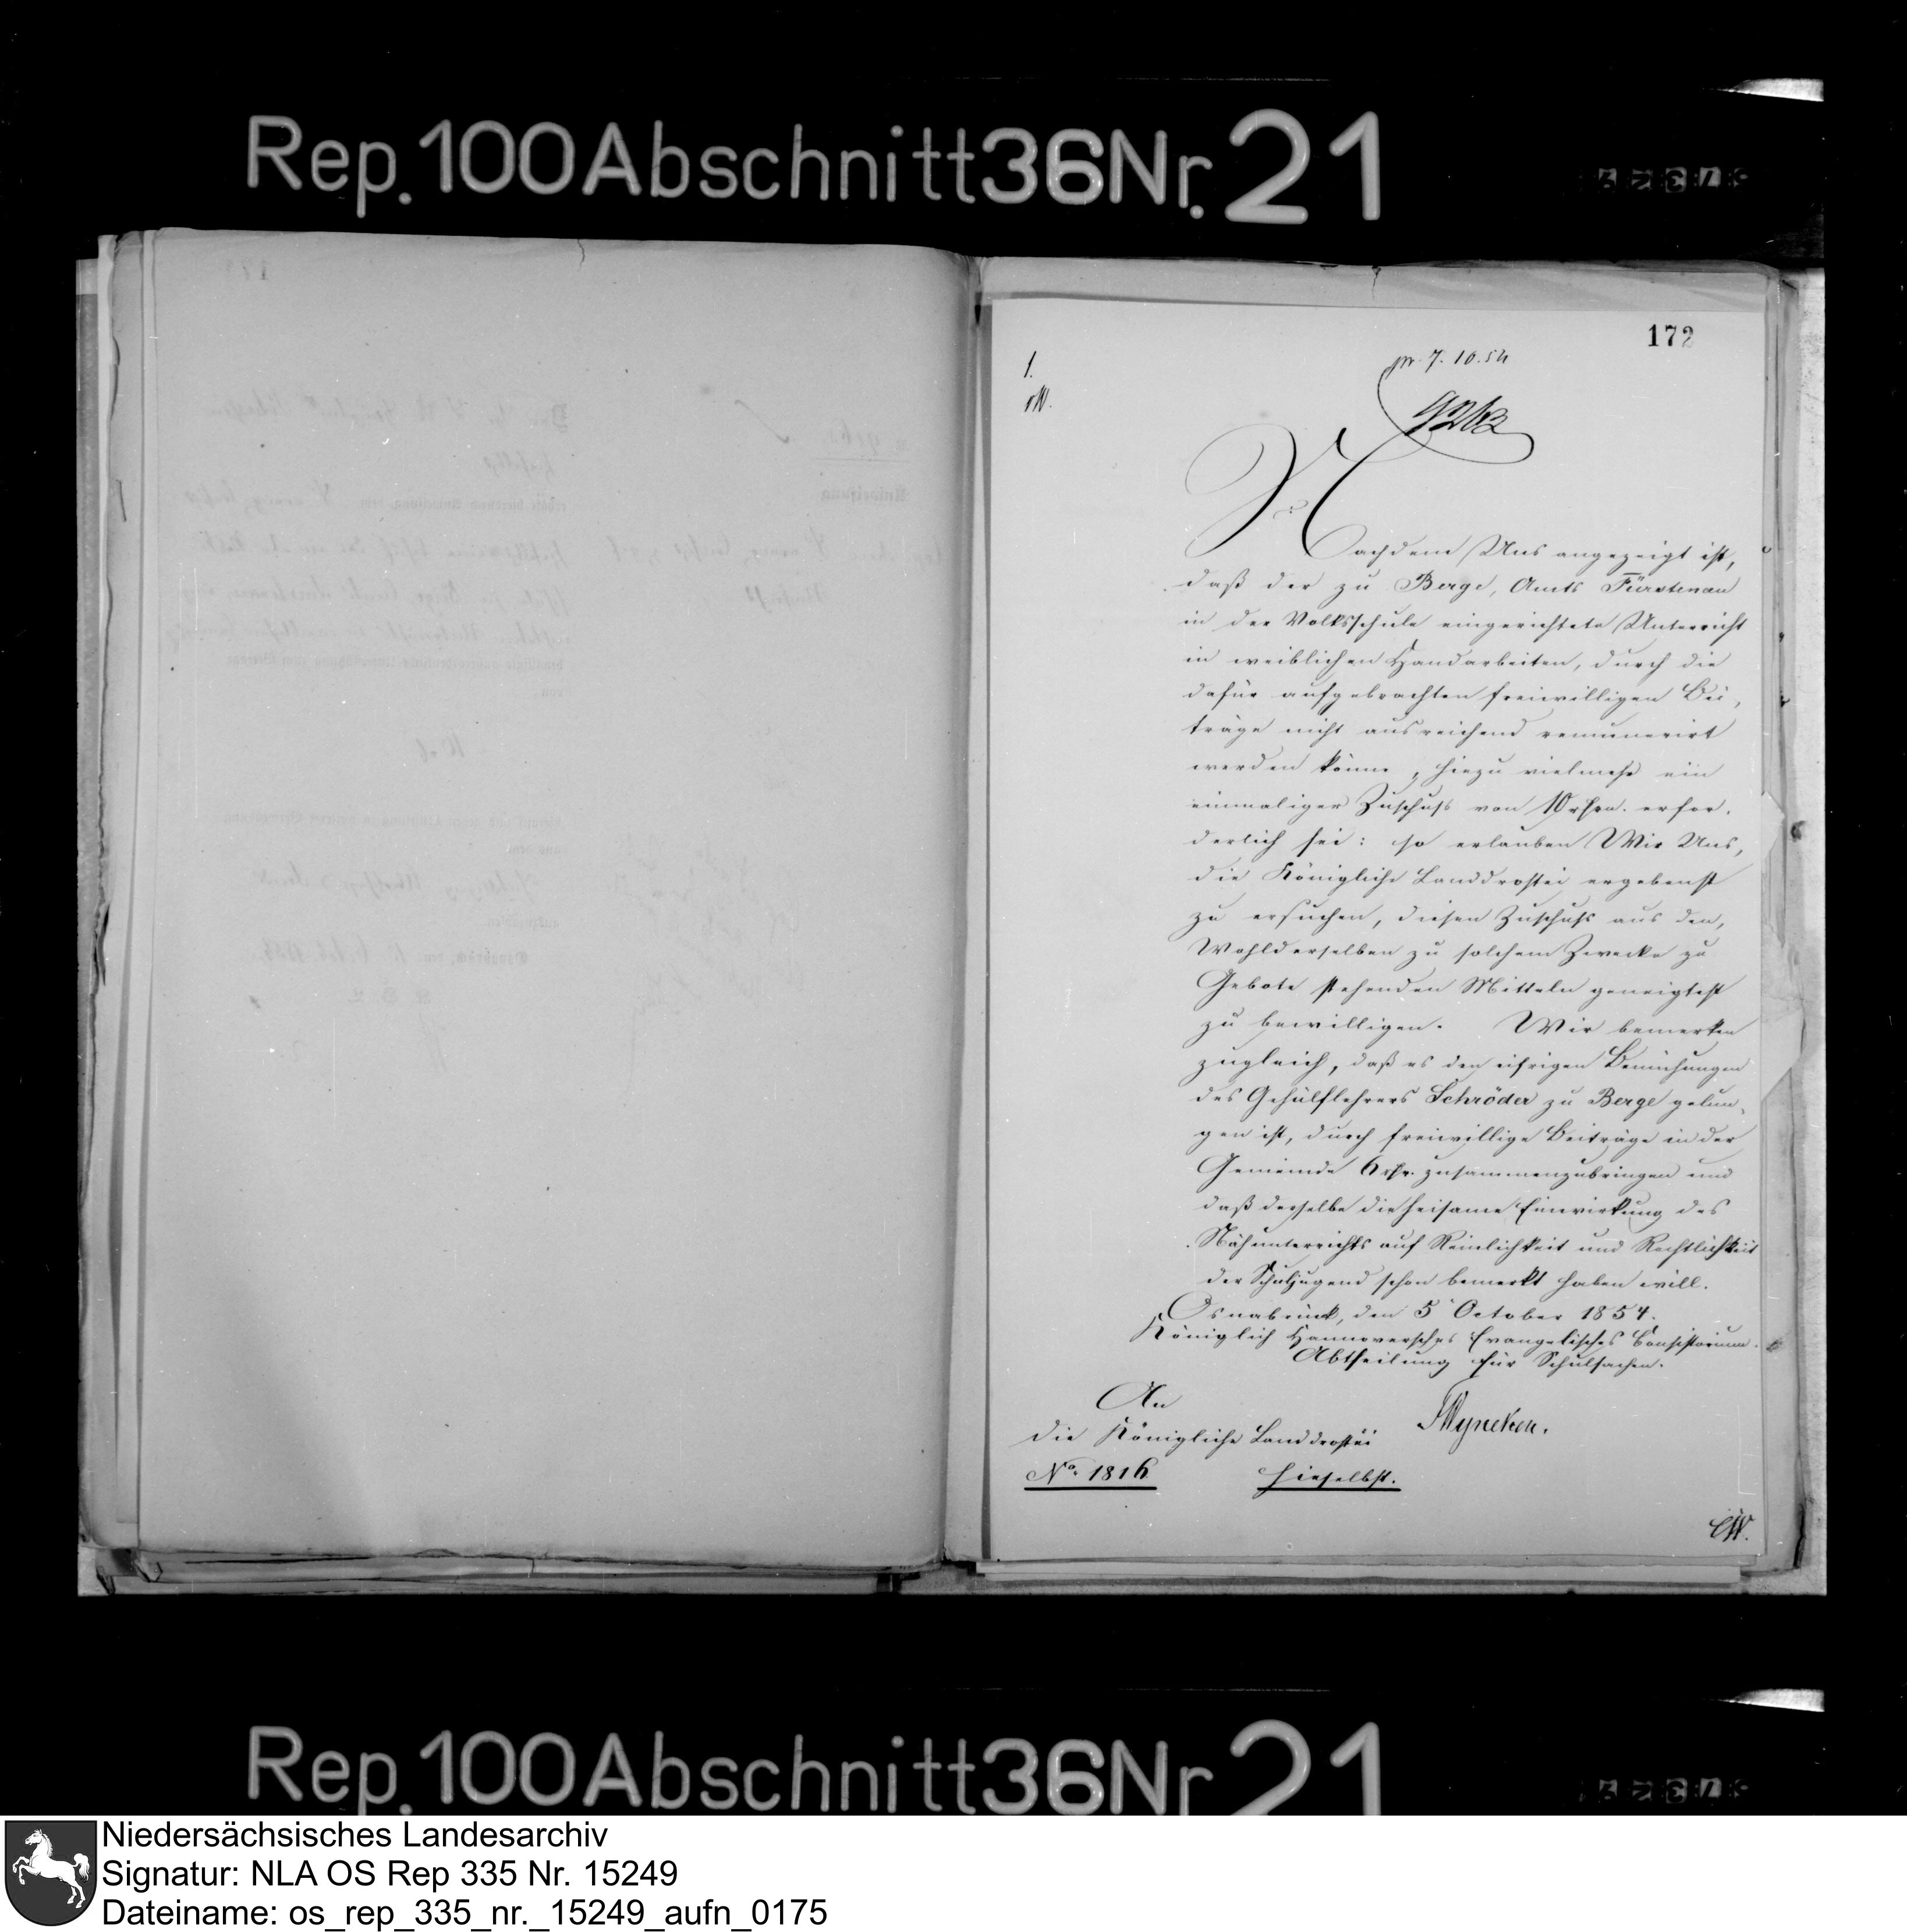 Rep. 100 Abschnitt 36 Nr. 21
172
1.
pr. 7. 10. 54
9262
Nachdem Uns angezeigt ist,
daß der zu Berge, Amts Fürstenau
in der Volksschule eingerichtete Unterricht
in weiblichen Handarbeiten, durch die
dafür aufgebrachten freiwilligen Bei-
träge nicht ausreichend remunerirt
werden könne, hiezu vielmehr ein
einmaliger Zuschuß von 10 rthrn. erfor-
derlich sei: so erlauben Wir Uns,
die Königliche Landdrostei ergebenst
zu ersuchen, diesen Zuschuß aus den,
Wohlderselben zu solchem Zwecke zu
Gebote stehenden Mitteln geneigtest
zu bewilligen. Wir bemerken
zugleich, daß es den eifrigen Bemühungen
des Gehülflehrers Schröder zu Berge gelun-
gen ist, durch freiwillige Beiträge in der
Gemeinde 6 rthr. zusammenzubringen und
daß derselbe die heilsame Einwirkung des
Nähunterrichts auf Reinlichkeit und Rechtlichkeit
der Schuljugend schon bemerkt haben will.
Osnabrück, den 5 October 1854.
Königlich Hannoversches Evangelisches Consistorium.
Abtheilung für Schulsachen.
An
die Königliche Landdrostei
Wyneken.
No. 1816
hieselbst.
CW.
Rep. 100 Abschnitt 36 Nr. 21
Niedersächsisches Landesarchiv
Signatur: NLA OS Rep 335 Nr. 15249
Dateiname: os_rep_335_nr._15249_aufn_0175